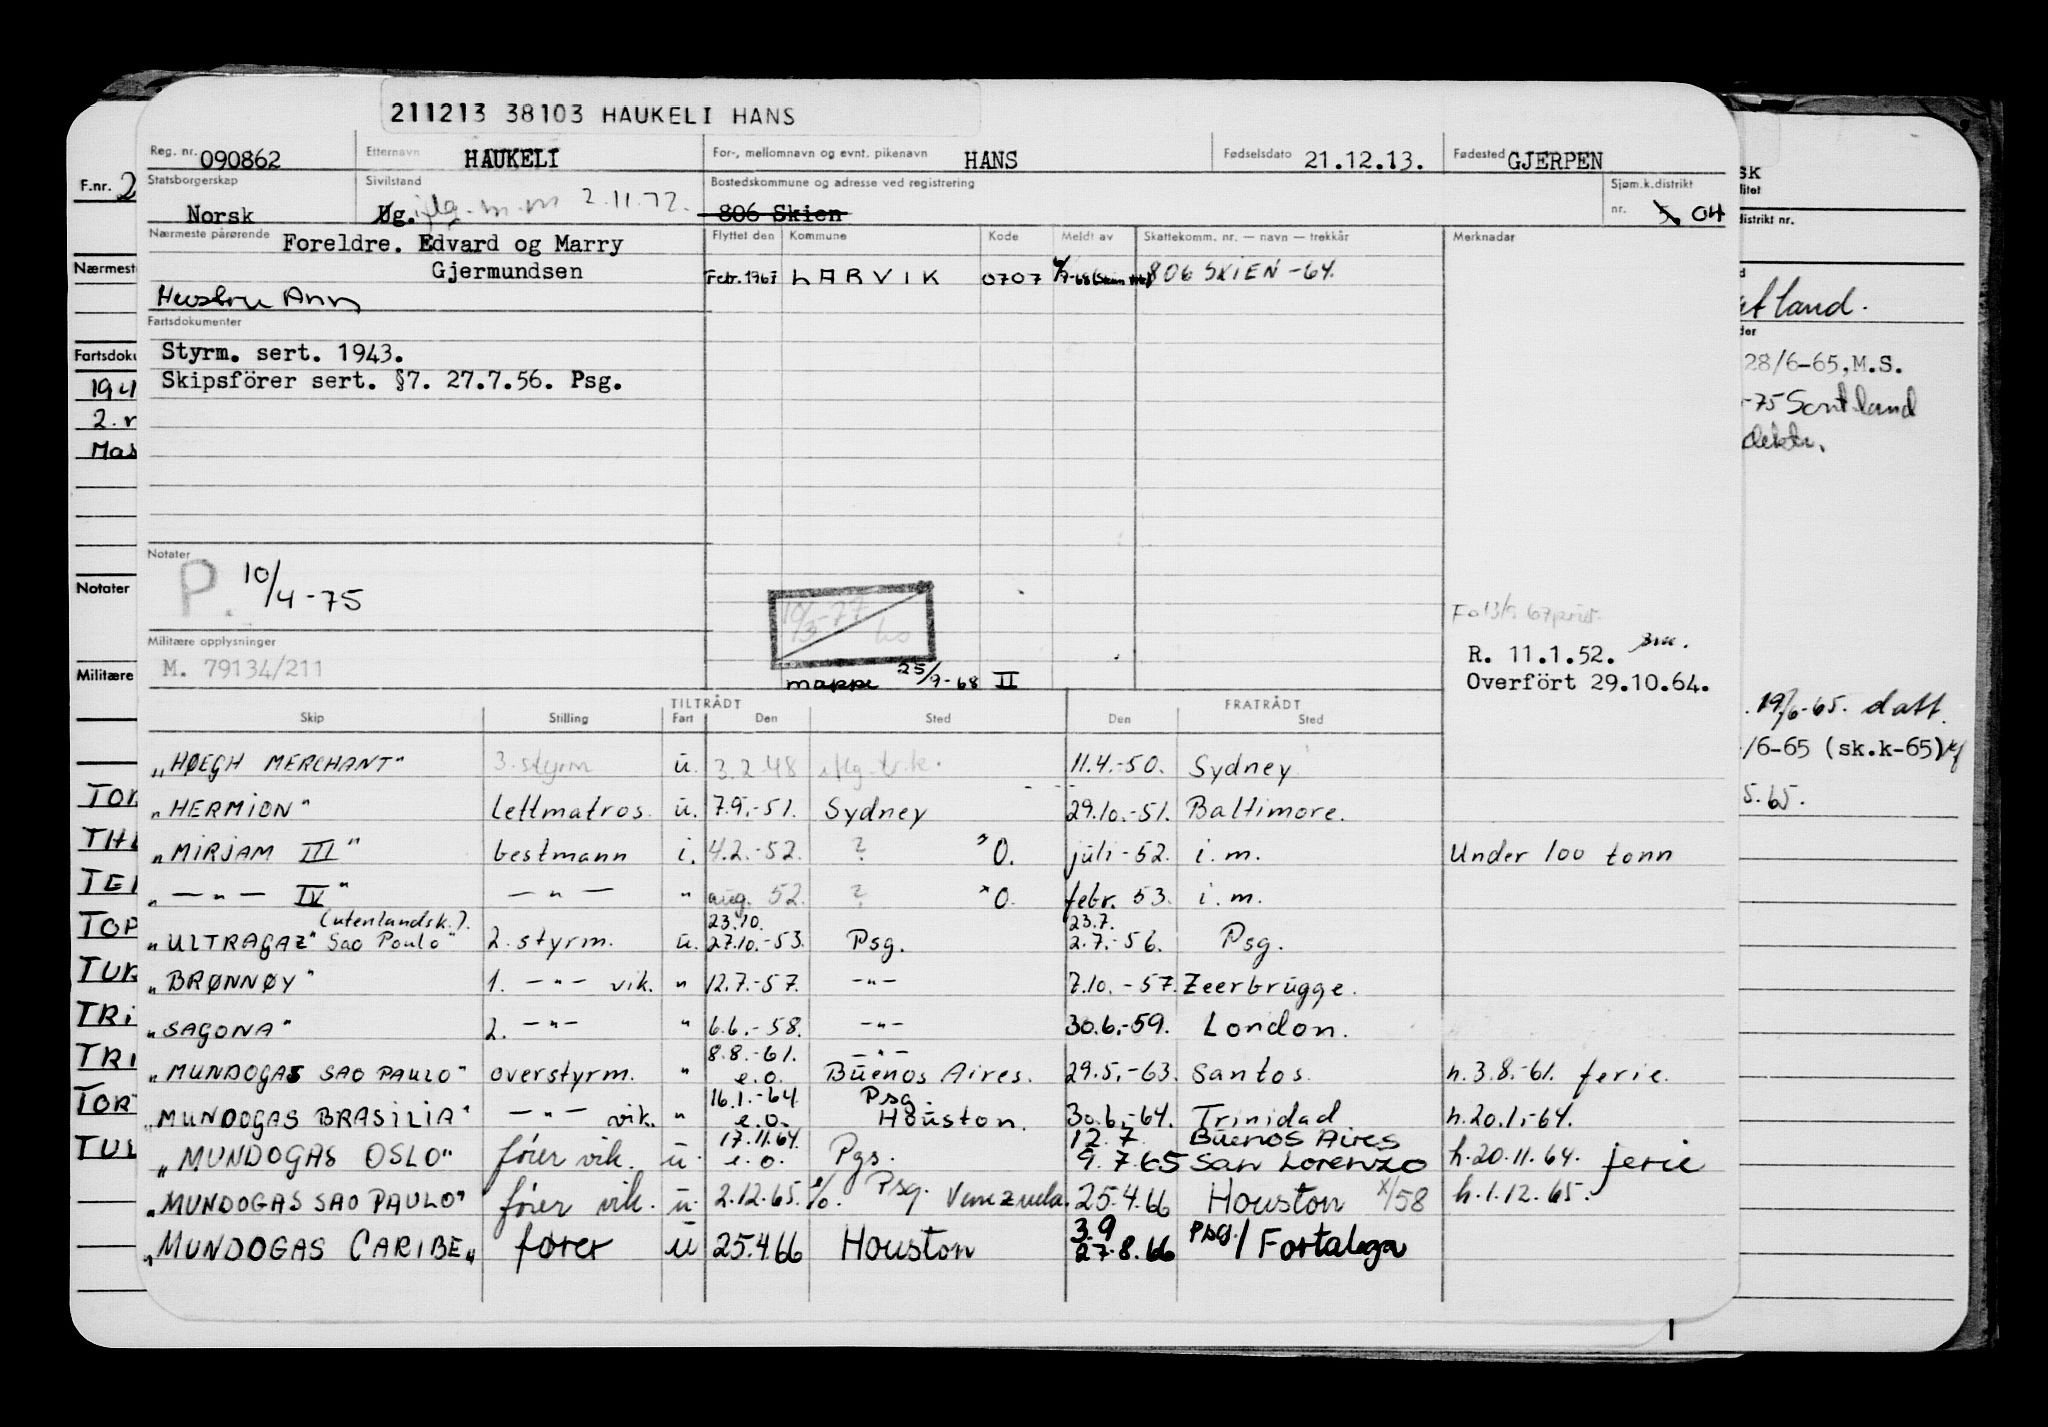 211213 38103 HAUKELI HANS
Reg. nr. 090862 Etternavn HAUKELI For-, mellomnavn og evnt. pikenavn HANS Fødselsdato 21.12.13. Fødested GJERPEN
Statsborgerskap Norsk Sivilstand Ug. 2.11.72. Bostedskommune og adresse ved registrering 806 Skien Sjøm.k.distrikt nr. 04
Nærmeste pårørende Foreldre. Edvard og Marry
Gjermundsen
Hustru Ann
Flyttet den Kommune Kode Meldt av Skattekomm. nr. — navn — trekkår Merknader
Febr. 1967 LARVIK 0707 806 SKIEN -64.
Fartsdokumenter
Styrm. sert. 1943.
Skipsförer sert. §7. 27.7.56. Psg.
Notater
P. 10/4-75
Militære opplysninger
M. 79134/211
mappe 25/9-68 II
R. 11.1.52.
Overfört 29.10.64.
TILTRÅDT FRATRÅDT
Skip Stilling Fart Den Sted Den Sted
"HØEGH MERCHANT" 3. styrm u. 3.2.48 11.4.-50. Sydney
"HERMION" Lettmatros. u. 7.9.-51. Sydney 29.10.-51. Baltimore.
"MIRJAM III" bestmann i. 4.2.-52. ? *O. juli-52. i.m. Under 100 tonn
" — " — IV" — " — " aug. 52. ? *O. febr. 53. i.m.
(utenlandsk.). 23.10. 23.7.
"ULTRAGAZ" Sao Poulo" 2. styrm. u. 27.10.-53. Psg. 2.7.-56. Psg.
"BRØNNØY" 1. -"- vik. " 12.7.-57. -"- 7.10.-57. Zeerbrügge.
"SAGONA" 2. -"- " 6.6.-58. -"- 30.6.-59. London.
8.8.-61. -"-
"MUNDOGAS SAO PAULO" overstyrm. " e.o. Buenos Aires. 29.5.-63. Santos. h.3.8.-61. ferie.
16.1.-64 Psg
"MUNDOGAS BRASILIA" -"- vik. " e.o. Houston. 30.6.-64. Trinidad h.20.1.-64.
17.11.64. 12.7. Buenos Aires
"MUNDOGAS OSLO" fører vik. u. e.o. Pgs. 9.7.65 San Lorenzo h.20.11.64. ferie
"MUNDOGAS SAO PAULO" fører vik. u. 2.12.65. e/o. Psg. Venezuela. 25.4.66 Houston X/58 h.1.12.65.
3.9
"MUNDOGAS CARIBE" fører u 25.4.66 Houston 27.8.66 Psg./ Fortalega
F.nr. 2
Nærmest
Fartsdoku
194
2.
Mas
Notater
Militære
TOR
THE
TEI
TOP
TUR
TRI
TRI
TOR
TUL
SK
litet
distrikt nr.
28/6-65, M.S.
-75
19/6-65. datt.
/6-65 (sk.k-65)
5.65.